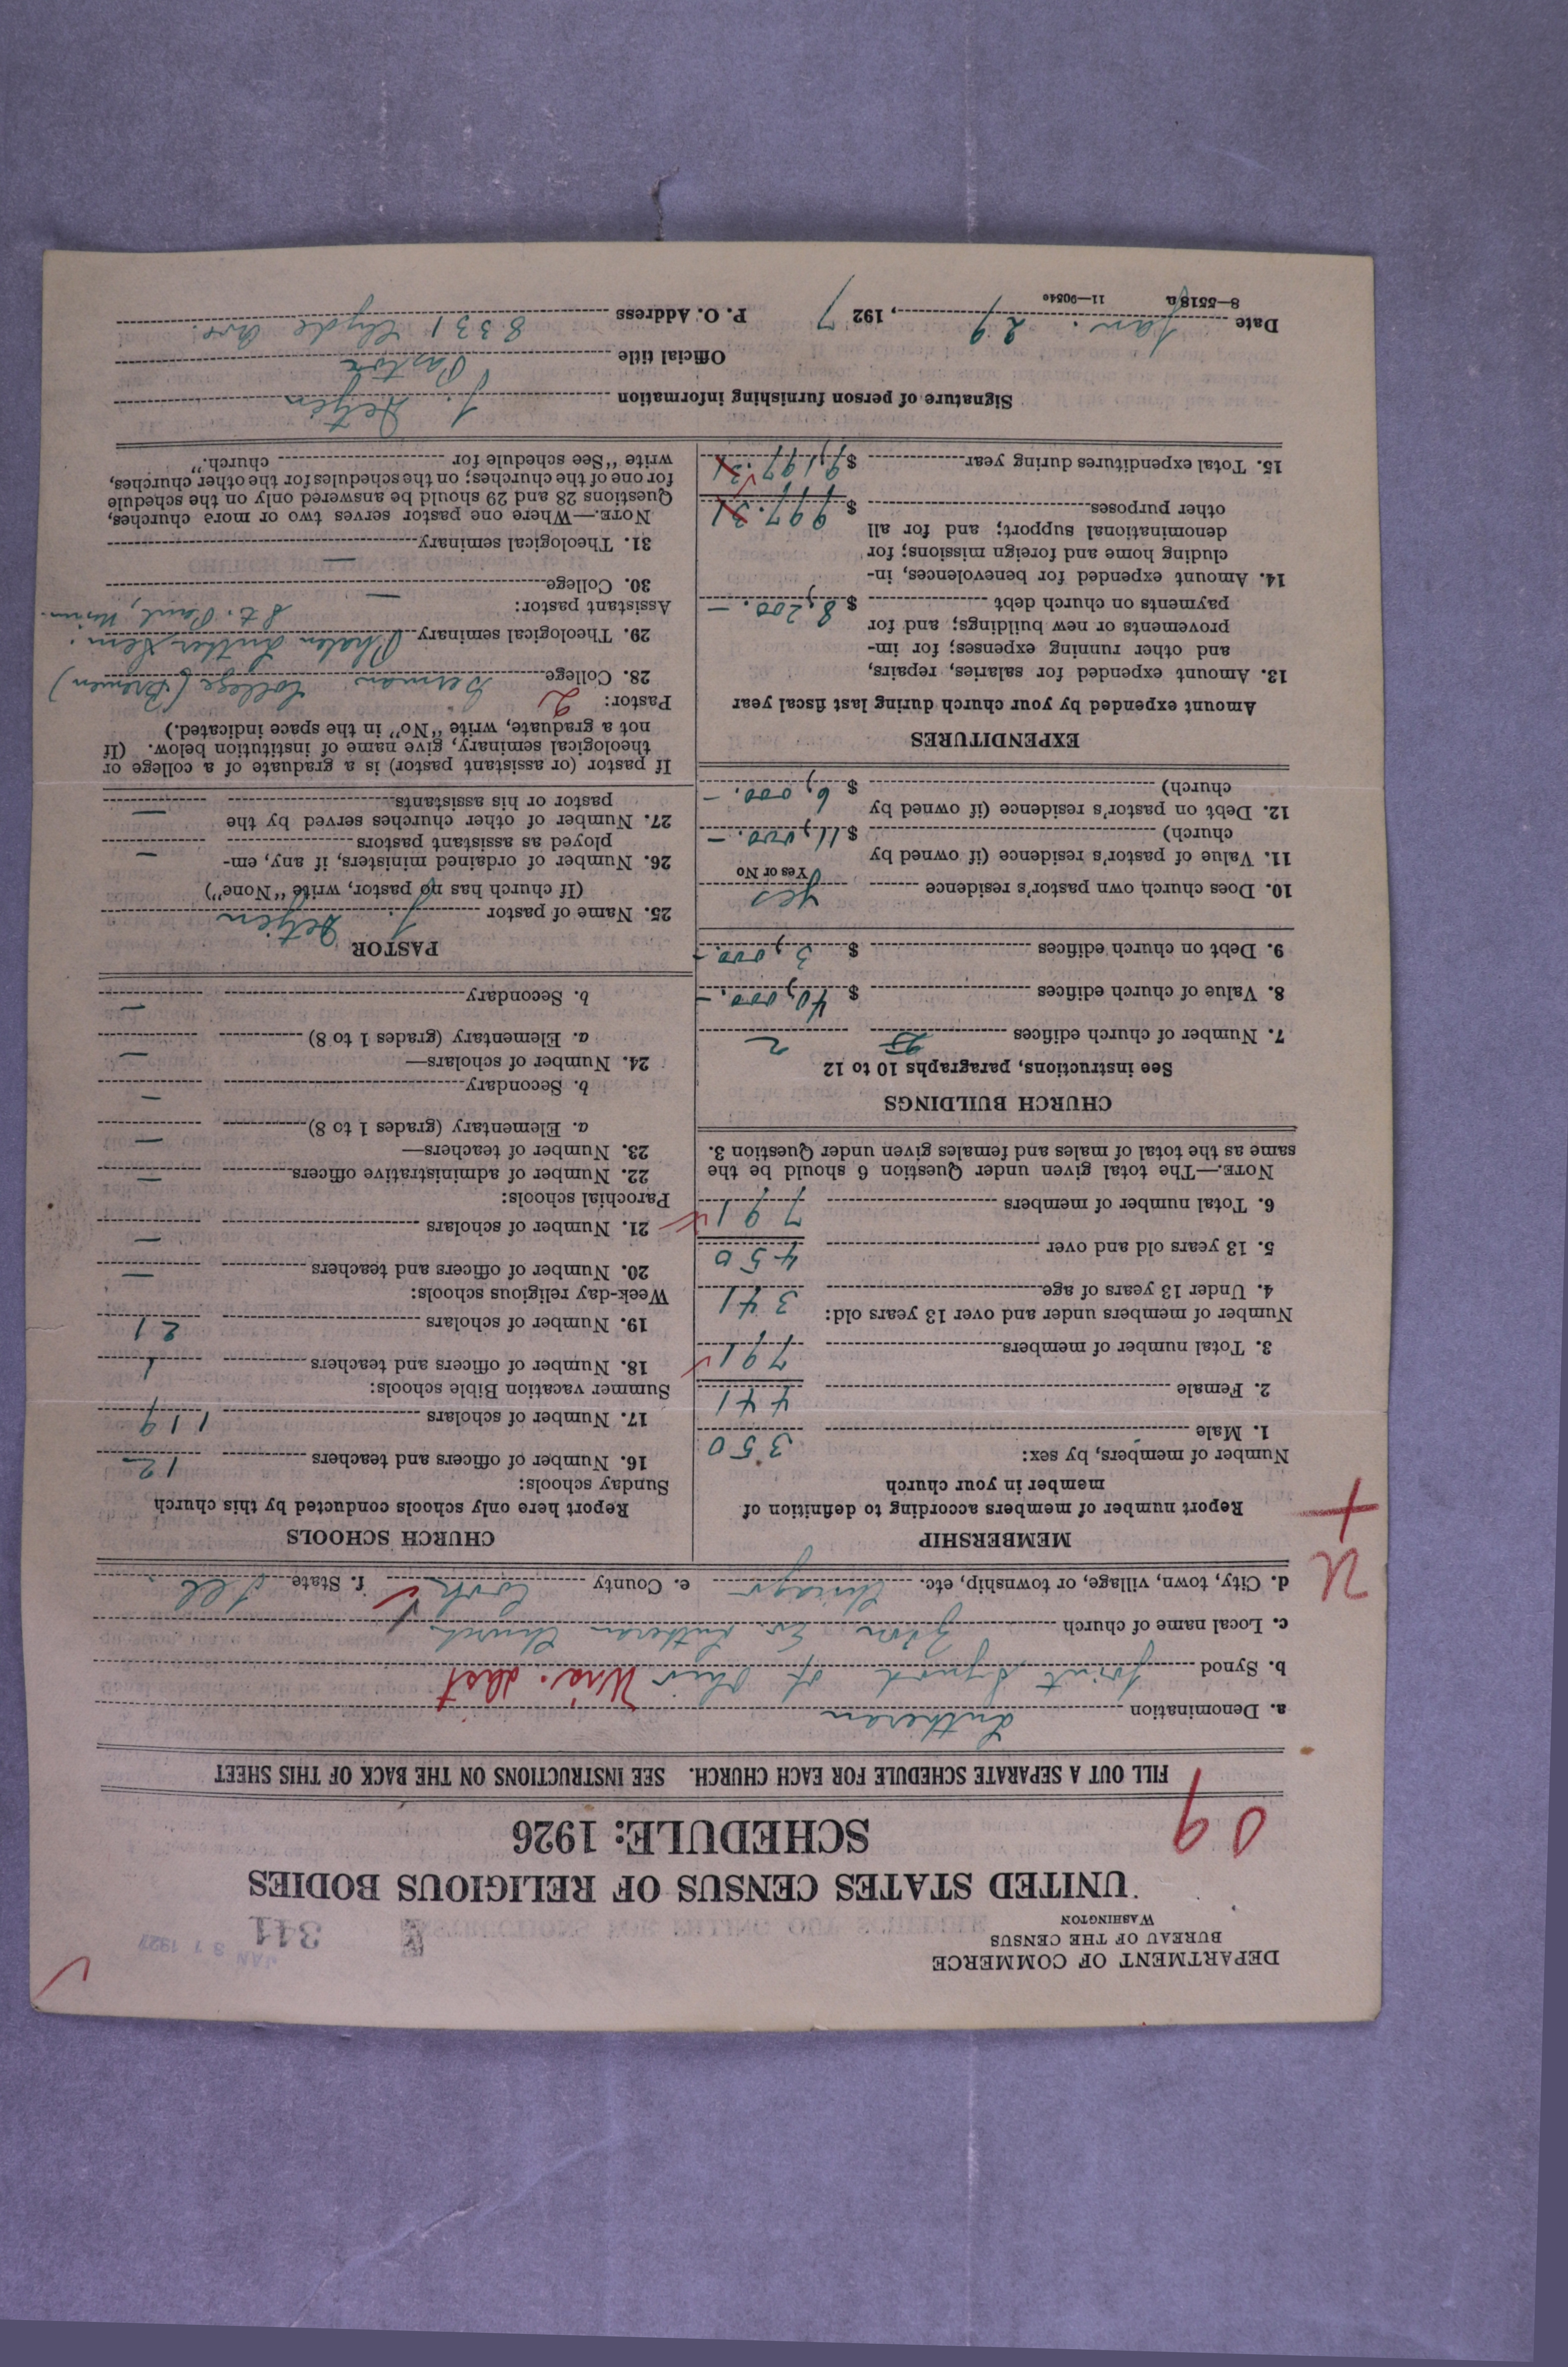 DEPARTMENT OF COMMERCE
BUREAU OF THE CENSUS
WASHINGTON
JAN 31 1927
341
UNITED STATES CENSUS OF RELIGIOUS BODIES
SCHEDULE: 1926
09
FILL OUT A SEPARATE SCHEDULE FOR EACH CHURCH. SEE INSTRUCTIONS ON THE BACK OF THIS SHEET
a. Denomination Lutheran
b. Synod Joint Synod of Ohio
c. Local name of church Zion Ev. Lutheran Church
d. City, town, village, or township, etc. Chicago e. County Cook f. State Ill.
MEMBERSHIP
Report number of members according to definition of
member in your church
Number of members, by sex:
1. Male 350
2. Female 441
3. Total number of members 791
Number of members under and over 13 years old:
4. Under 13 years of age 341
5. 13 years old and over 450
6. Total number of members 791
NOTE.—The total given under Question 6 should be the
same as the total of males and females given under Question 3.
CHURCH BUILDINGS
See instructions, paragraphs 10 to 12
7. Number of church edifices 2
8. Value of church edifices $ 40,000.—
9. Debt on church edifices $ 3,000.—
10. Does church own pastor's residence Yes
Yes or No
11. Value of pastor's residence (if owned by
church) $ 11,000.—
12. Debt on pastor's residence (if owned by
church) $ 6,000.—
EXPENDITURES
Amount expended by your church during last fiscal year
13. Amount expended for salaries, repairs,
and other running expenses; for im-
provements or new buildings; and for
payments on church debt $ 8,200.—
14. Amount expended for benevolences, in-
cluding home and foreign missions; for
denominational support; and for all
other purposes $ 997.31
15. Total expenditures during year $ 9,197.31
CHURCH SCHOOLS
Report here only schools conducted by this church
Sunday schools:
16. Number of officers and teachers 12
17. Number of scholars 119
Summer vacation Bible schools:
18. Number of officers and teachers 1
19. Number of scholars 21
Week-day religious schools:
20. Number of officers and teachers —
21. Number of scholars —
Parochial schools:
22. Number of administrative officers —
23. Number of teachers—
a. Elementary (grades 1 to 8) —
b. Secondary —
24. Number of scholars—
a. Elementary (grades 1 to 8) —
b. Secondary —
PASTOR
25. Name of pastor J. Detjen
(If church has no pastor, write "None")
26. Number of ordained ministers, if any, em-
ployed as assistant pastors —
27. Number of other churches served by the
pastor or his assistants —
If pastor (or assistant pastor) is a graduate of a college or
theological seminary, give name of institution below. (If
not a graduate, write "No" in the space indicated.)
Pastor: 2
28. College German College (Bremen)
29. Theological seminary Phalen Luther Sem.
St. Paul, Minn.
Assistant pastor:
30. College —
31. Theological seminary —
NOTE.—Where one pastor serves two or more churches,
Questions 28 and 29 should be answered only on the schedule
for one of the churches; on the schedules for the other churches,
write "See schedule for church."
Signature of person furnishing information J. Detjen
Official title Pastor
Date Jan. 29, 1927 P. O. Address 8331 Clyde Ave.
8—5518a 11—9054o